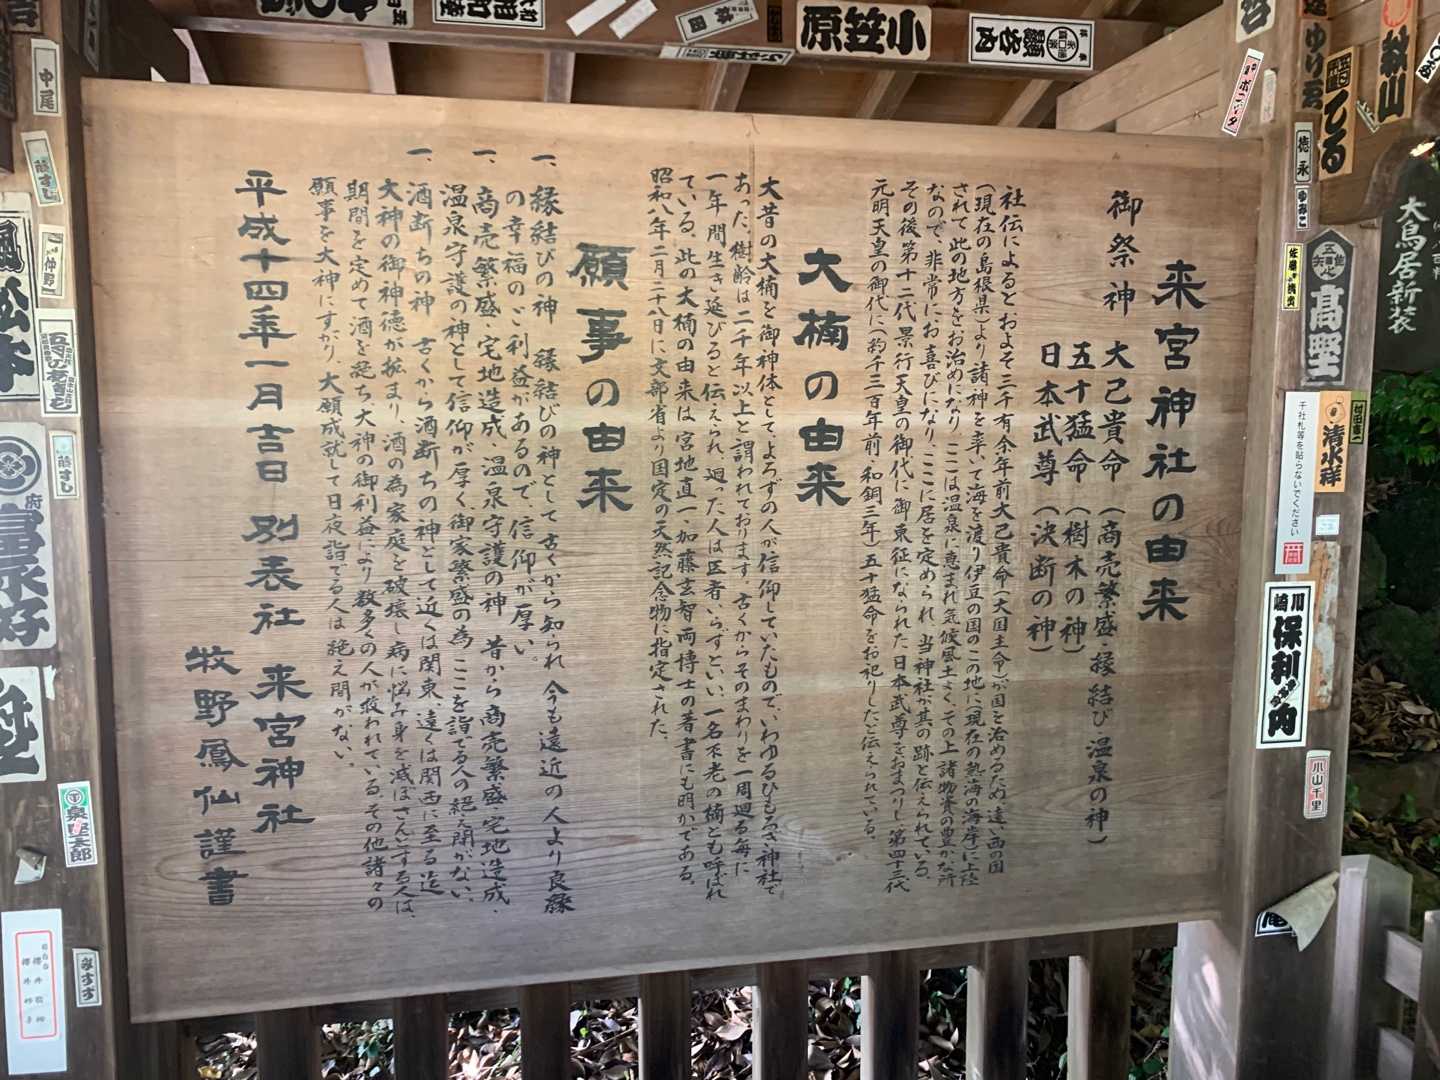 来宮神社の由来
御祭神　大己貴命（商売繁盛・縁結び・温泉の神）
五十猛命（樹木の神）
日本武尊（決断の神）
社伝によると、およそ三千有余年前大己貴命（大国主命）が国を治めるため、遠い西の国
（現在の島根県）より諸神を率いて海を渡り伊豆の国のこの地に（現在の熱海の海岸）に上陸
されて、此の地方をお治めになり、ここは温泉に恵まれ気候風土よく、その上諸物資の豊かな所
なので、非常にお喜びになり、ここに居を定められ、当神社が其の跡と伝えられている。
その後第十二代景行天皇の御代に御東征になられた日本武尊をおまつりし、第四十三代
元明天皇の御代に（約千三百年前・和銅三年）五十猛命をお祀りしたと伝えられている。
大楠の由来
大昔の大楠を御神体として、よろずの人が信仰していたもので、いわゆるひもろぎ神社で
あった。樹齢は二千年以上と謂われております。古くからそのまわりを一周廻る毎に
一年間生き延びると伝えられ、廻った人は医者いらずといい、一名不老の楠とも呼ばれ
ている。此の大楠の由来は、宮地直一、加藤玄智両博士の著書にも明かである。
昭和八年二月二十八日に文部省より国定の天然記念物に指定された。
願事の由来
一、縁結びの神　縁結びの神として古くから知られ今も遠近の人より良縁
の幸福のご利益があるので、信仰が厚い。
一、商売繁盛・宅地造成、温泉守護の神　昔から商売繁盛・宅地造成・
温泉守護の神として信仰が厚く、御家繁盛の為ここを詣でる人の絶え間がない。
一、酒断ちの神　古くから酒断ちの神として近くは関東、遠くは関西に至る迄
大神の御神徳が拡まり、酒の為家庭を破壊し病に悩み身を滅ぼさんとする人は、
期間を定めて酒を絶ち、大神の御利益により数多くの人が救われている。その他諸々の
願事を大神にすがり、大願成就して日夜詣でる人は絶え間がない。
平成十四年一月吉日　別表社　来宮神社
牧野鳳仙謹書
小笠原
願谷内
萩山
てる
徳永
ゆみこ
高野
清水祥
千社札等を貼らないでください
川崎
保利内
小山千里
大鳥居新装
中尾
仲野
松本
富永好
泉堅太郎
みすず